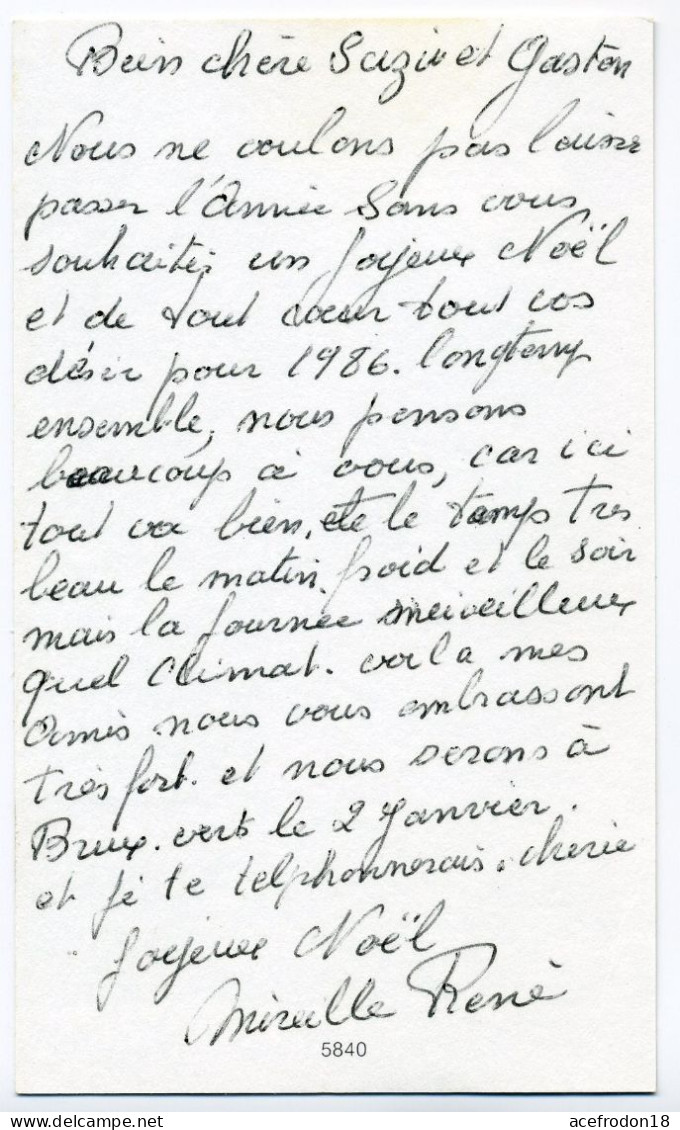 Bien chère Suzie et Gaston
Nous ne voulons pas laisser
passer l'Année Sans vous
souhaiter un Joyeux Noël
et de tout cœur tout vos
désir pour 1986. longtemp
ensemble, nous pensons
beaucoup à vous, car ici
tout va bien, et le temps tres
beau le matin froid et le soir
mais la journée merveilleux
quel climat. voila mes
Amis nous vous embrassont
très fort. et nous serons à
Brux. vers le 2 Janvier.
et je te telphonnerais. chérie
Joyeux Noël
Mireille René
5840
acefrodon18